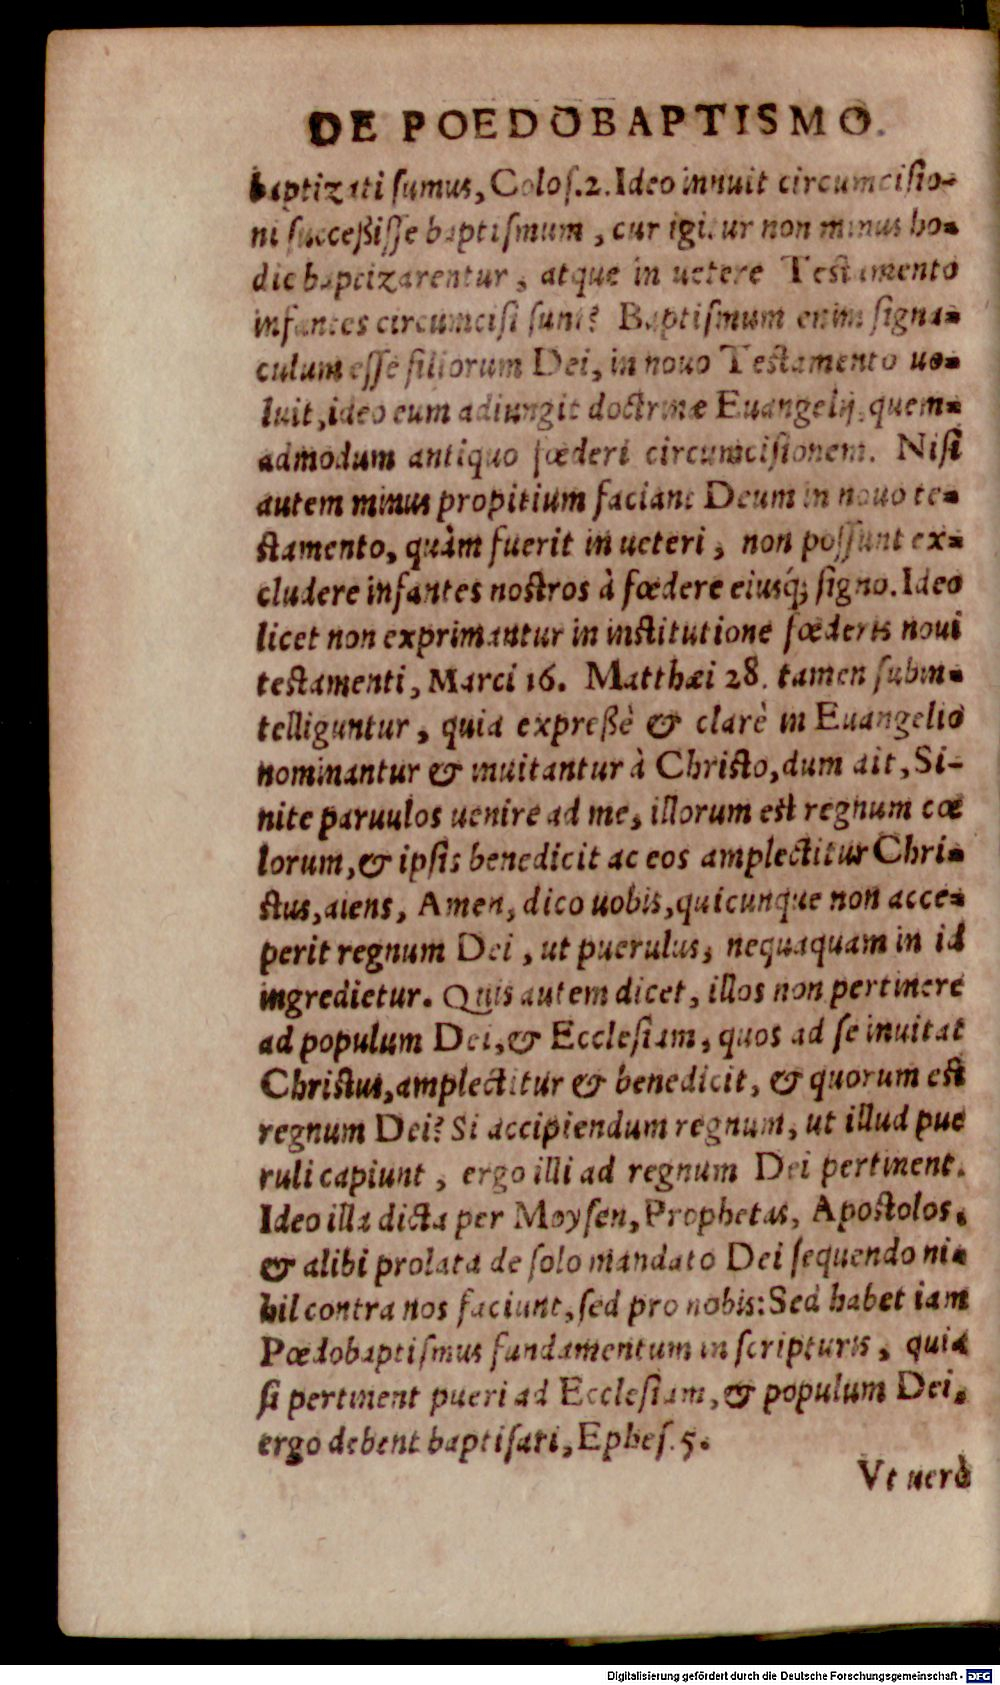 DE POEDOBAPTISMO.
baptizati sumus, Colos.2. Ideo innuit circumcisio-
ni succeßisse baptismum, cur igitur non minus ho-
die baptizarentur, atque in uetere Testamento
infantes circumcisi sunt? Baptismum enim signa-
culum esse filiorum Dei, in nouo Testamento uo-
luit, ideo eum adiungit doctrinæ Euangelij, quem-
admodum antiquo fœderi circumcisionem. Nisi
autem minus propitium faciant Deum in nouo te-
stamento, quàm fuerit in ueteri, non possunt ex-
cludere infantes nostros à fœdere eiusq́; signo. Ideo
licet non exprimantur in institutione fœderis noui
testamenti, Marci 16. Matthæi 28. tamen subin-
telliguntur, quia expreßè & clarè in Euangelio
nominantur & inuitantur à Christo, dum ait, Si-
nite paruulos uenire ad me, illorum est regnum cœ
lorum, & ipsis benedicit ac eos amplectitur Chri-
stus, aiens, Amen, dico uobis, quicunque non acce-
perit regnum Dei, ut puerulus, nequaquam in id
ingredietur. Quis autem dicet, illos non pertinere
ad populum Dei, & Ecclesiam, quos ad se inuitat
Christus, amplectitur & benedicit, & quorum est
regnum Dei? Si accipiendum regnum, ut illud pue
ruli capiunt, ergo illi ad regnum Dei pertinent.
Ideo illa dicta per Moysen, Prophetas, Apostolos,
& alibi prolata de solo mandato Dei sequendo ni-
hil contra nos faciunt, sed pro nobis: Sed habet iam
Pœdobaptismus fundamentum in scripturis, quia
si pertinent pueri ad Ecclesiam, & populum Dei,
ergo debent baptisari, Ephes. 5.
Vt uerò
Digitalisierung gefördert durch die Deutsche Forschungsgemeinschaft - DFG